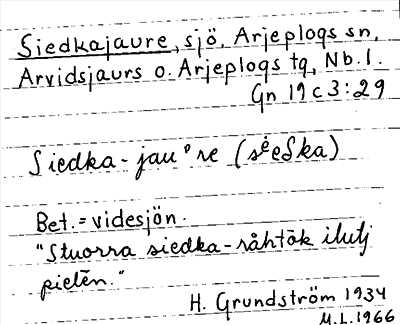 Siedkajaure, sjö, Arjeplogs sn,
Arvidsjaurs o. Arjeplogs tg, Nb. l.
Gn 19 c 3:29
Siedka-jauºre (séeδka)
Bet. = videsjön.
"Stuorra siedka-råhtåk ilutj
pietēn."
H. Grundström 1934
M.L. 1966